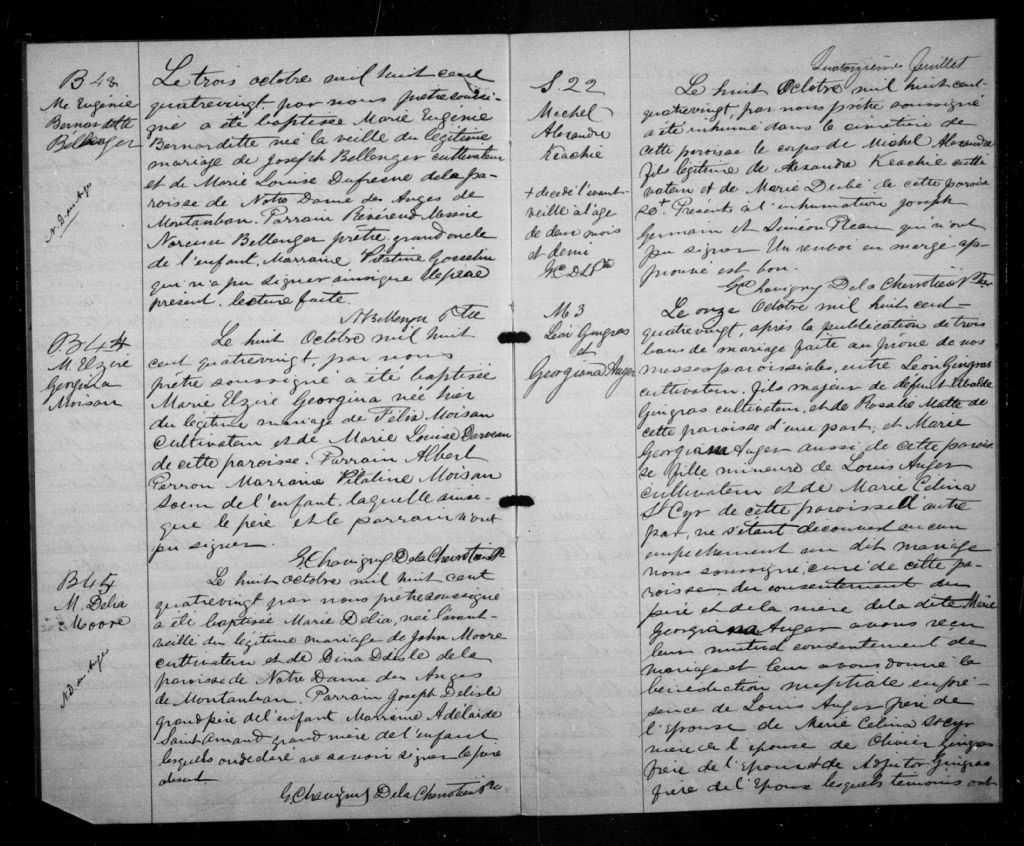 B 43
Me Eugénie
Bernarditte
Bellenger
N. D. des Anges
Le trois octobre mil huit cent
quatrevingt, par nous prêtre soussi-
gné a été baptisée Marie Eugénie
Bernarditte née la veille du légitime
mariage de Joseph Bellenger cultivateur
et de Marie Louise Dufresne de la pa-
roisse de Notre Dame des Anges de
Montauban. Parrain Révérend Messire
Narcisse Bellenger prêtre, grand oncle
de l'enfant, Marraine Vitaline Gosselin
qui n'a pu signer ainsique le père
présent. lecture faite.
N Bellenger Ptre
B 44
M. Elzire
Georgina
Moisan
Le huit Octobre mil huit
cent quatrevingt, par nous
prêtre soussigné a été baptisée
Marie Elzire Georgina née hier
du légitime mariage de Félix Moisan
Cultivateur et de Marie Louise Darveau
de cette paroisse. Parrain Albert
Perron Marraine Vitaline Moisan
soeur de l'enfant, laquelle ainsi-
que le père et le parrain n'ont
pu signer.
G Chavigny De la Chevrotière Ptre
B 45
M. Délia
Moore
N. D. des Anges
Le huit octobre mil huit cent
quatrevingt par nous prêtre soussigné
a été baptisée Marie Délia, née l'avant-
veille du légitime mariage de John Moore
cultivateur et de Dina Délisle de la
paroisse de Notre Dame des Anges
de Montauban. Parrain Joseph Delisle
grand père de l'enfant Marraine Adélaide
Saint Amand grand mère de l'enfant
lesquels ont déclaré ne savoir signer le père
absent
G Chavigny De la Chevrotière Ptre
S. 22
Michel
Alexandre
Keachie
+ decédé l'avant-
veille à l'age
de deux mois
et demi
GC DLC Ptre
Quatorzième feuillet
Le huit Octobre mil huit cent
quatrevingt, par nous prêtre soussigné
a été inhumé dans le cimetière de
cette paroisse le corps de Michel Alexandre
fils légitime de Alexandre Keachie culti-
vateur et de Marie de cette paroisse
Présents à l'inhumation Joseph
Germain et Siméon Pleau qui n'ont
pu signer Un renvoi en marge ap-
prouvé est bon.
G Chavigny De la Chevrotière Ptre
M 3
Léon Gingras
et
Georgiana Auger
Le onze Octobre mil huit cent-
quatrevingt, après la publication de trois
bans de mariage faite au prône de nos
messes paroissiales, entre Léon Gingras
cultivateur, fils majeur de défunt
Gingras cultivateur, et de Rosalie Matte de
cette paroisse d'une part; et Marie
Georgiana Auger aussi de cette parois
se fille mineure de Louis Auger
cultivateur et de Marie Celina
St Cyr de cette paroisse d'autre
part, ne s'étant découvert aucun
empêchement au dit mariage
nous soussigné, curé de cette pa-
roisse du consentement du
père et de la mère de la dite Marie
Georgiana Auger avons reçu
leur mutuel consentement de
mariage et leur avons donné la
bénédiction nuptiale en pré-
sence de Louis Auger père de
l'épouse de Marie Celina St Cyr
mère de l'épouse de Olivier Gingras
frère de l'Epoux & de Adjutor Gingras
frère de l'Epoux lesquels témoins ont